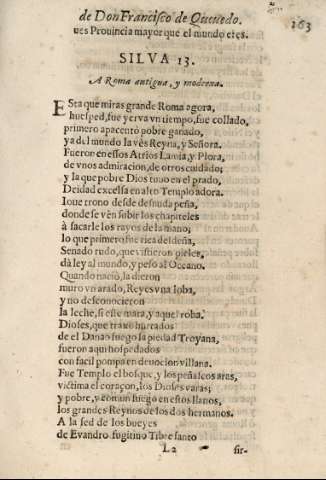 163
de Don Francisco de Quevedo.
ves Provincia mayor que el mundo eres.
SILVA 13.
A Roma antigua, y moderna.
ESta que miras grande Roma agora,
huesped, fue yerva vn tiempo, fue collado,
primero apacentò pobre ganado,
ya del mundo la vès Reyna, y Señora.
Fueron en estos Atrios Lamia, y Flora,
de vnos admiracion, de otros cuidado;
y la que pobre Dios tuuo en el prado,
Deidad excelsa en alto Templo adora.
Ioue trono desde desnuda peña,
donde se vèn subir los chapiteles
à sacarle los rayos de la mano;
lo que primero fue rica desdeña,
Senado rudo, que vistieron pieles,
dà ley al mundo, y peso al Oceano.
Quando naciò, la dieron
muro vn arado, Reyes vna loba,
y no desconocieron
la leche, si este mata, y aquel roba.
Dioses, que traxo hurtados
de el Danao fuego la piedad Troyana,
fueron aqui hospedados
con facil pompa en deuocion villana.
Fue Templo el bosque, y los peñascos aras,
victima el coraçon, los Dioses varas;
y pobre, y comun fuego en estos llanos,
los grandes Reynos de los dos hermanos.
A la sed de los bueyes
de Evandro fugitiuo Tibre santo
L2 sir-